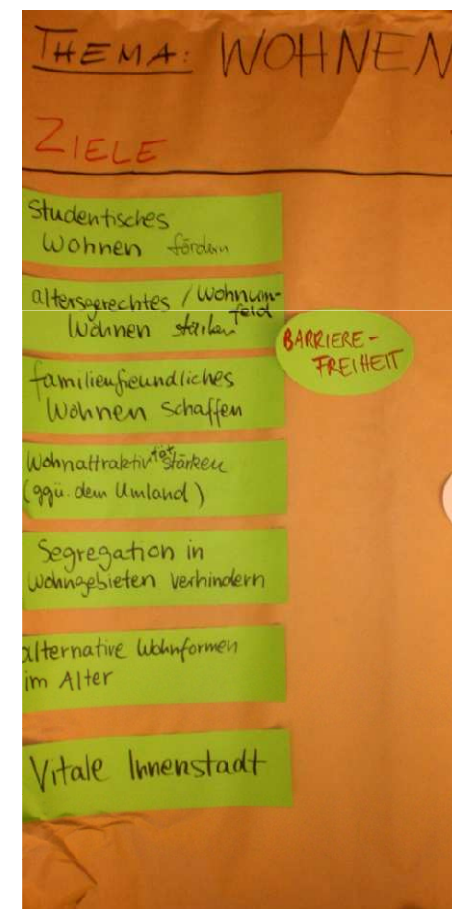 THEMA: WOHNEN
ZIELE
Studentisches
Wohnen fördern
altersgerechtes / Wohnum-
feld
Wohnen stärken
BARRIERE-
FREIHEIT
familienfreundliches
Wohnen schaffen
Wohnattraktivität stärken
(ggü. dem Umland)
Segregation in
Wohngebieten verhindern
alternative Wohnformen
im Alter
Vitale Innenstadt